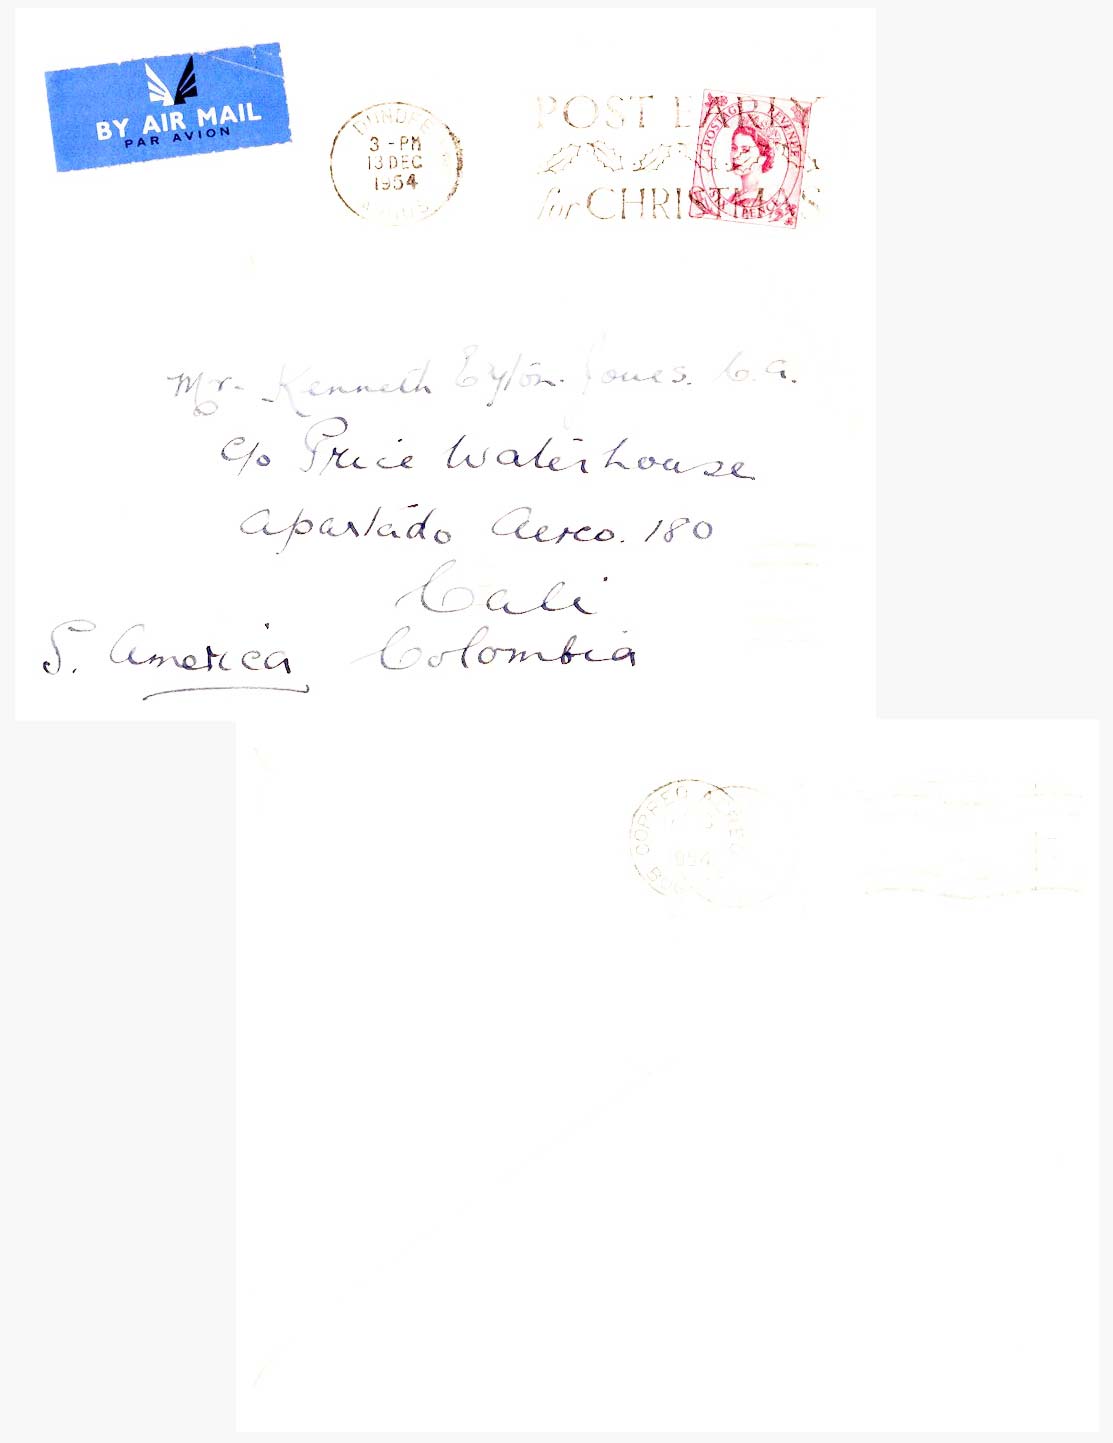 BY AIR MAIL
PAR AVION
DUNDEE
3 - PM
13 DEC
1954
ANGUS
POST EARLY
for CHRISTMAS
POSTAGE REVENUE
Mr. Kenneth Eyton-Jones. C.A.
c/o Price Waterhouse
Apartado Aereo. 180
Cali
S. America Colombia
CORREO AEREO
954